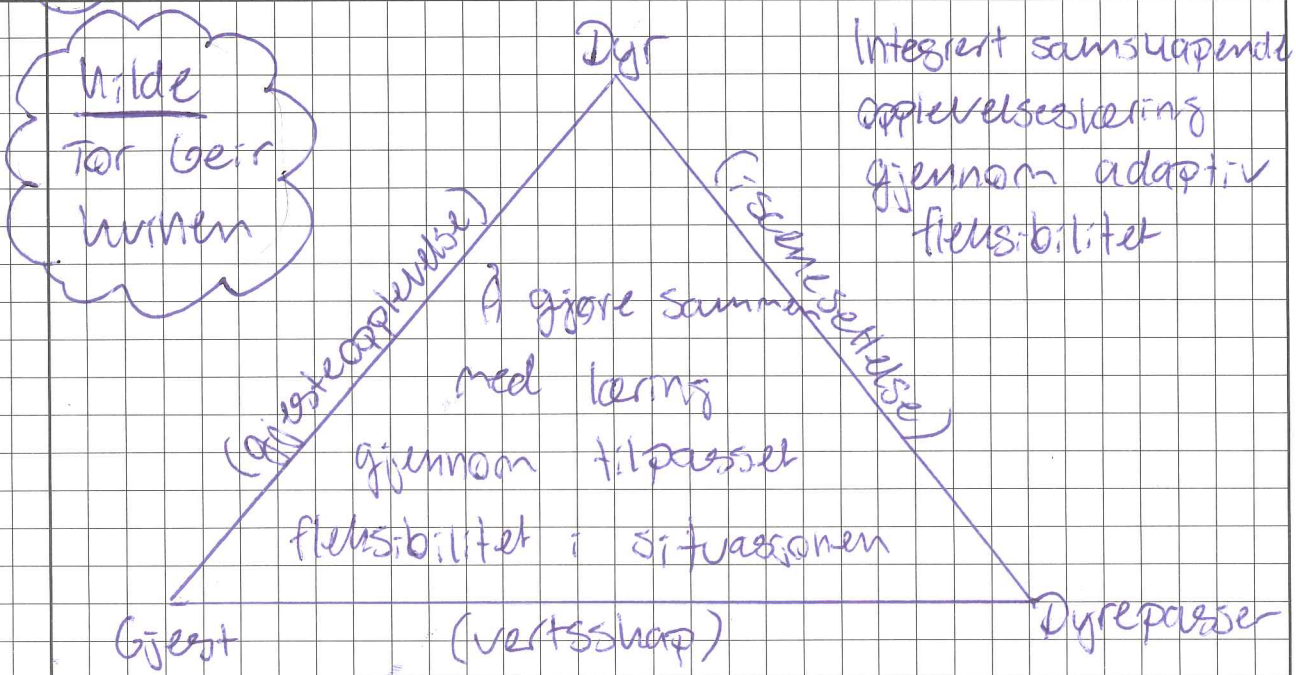 Kilde
Tor Geir
Kvinen
Dyr
Integrert samskapende
opplevelseslæring
gjennom adaptiv
fleksibilitet
(gjesteopplevelse)
(iscenesettelse)
Å gjøre sammen
med læring
gjennom tilpasset
fleksibilitet i situasjonen
Gjest
(vertsskap)
Dyrepasser